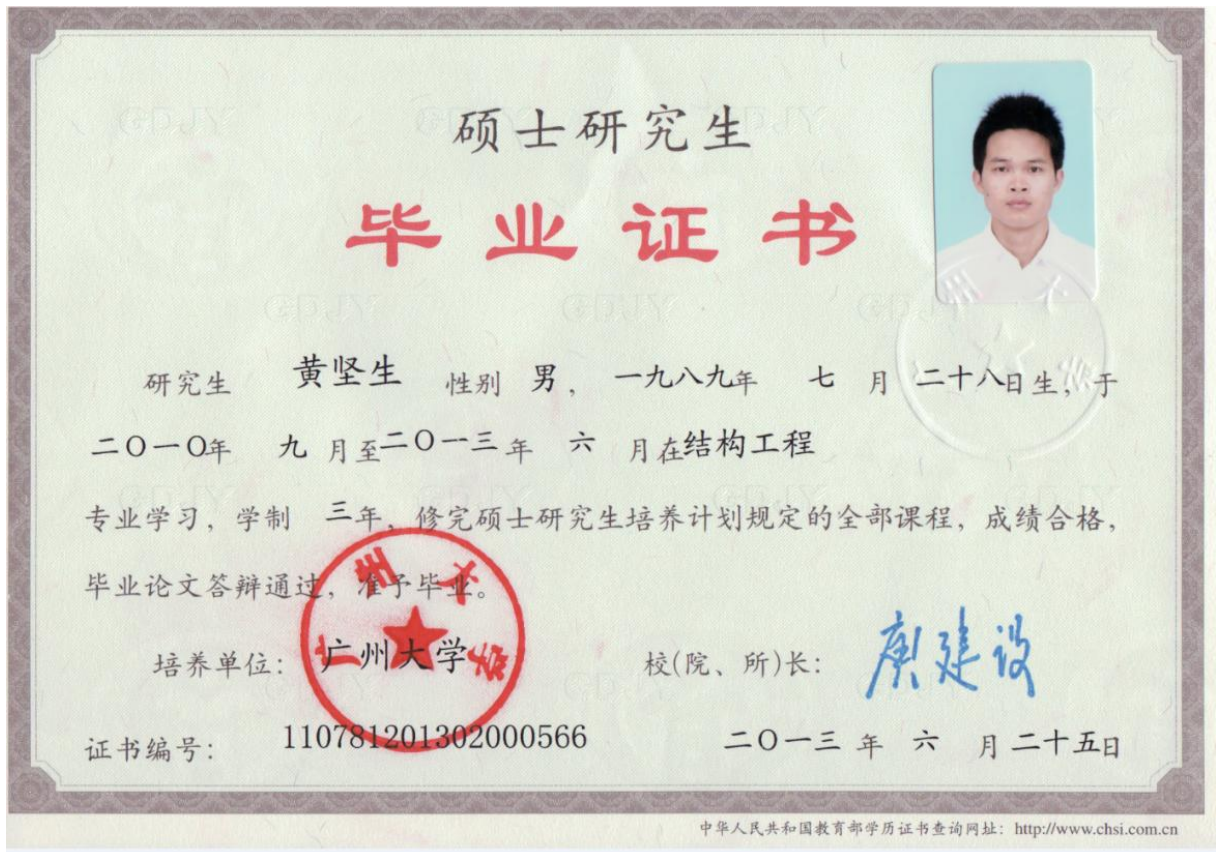 硕士研究生
毕业证书
研究生 黄坚生 性别 男，一九八九年 七 月 二十八日生，于
二〇一〇年 九 月至二〇一三年 六 月在结构工程
专业学习，学制 三年，修完硕士研究生培养计划规定的全部课程，成绩合格，
毕业论文答辩通过，准予毕业。
培养单位：广州大学 校(院、所)长：庾建设
广州大学
证书编号：110781201302000566 二〇一三年 六 月二十五日
中华人民共和国教育部学历证书查询网址：http://www.chsi.com.cn